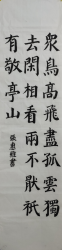 衆鳥高飛盡孤雲獨
去閑相看兩不猒秖
有敬亭山